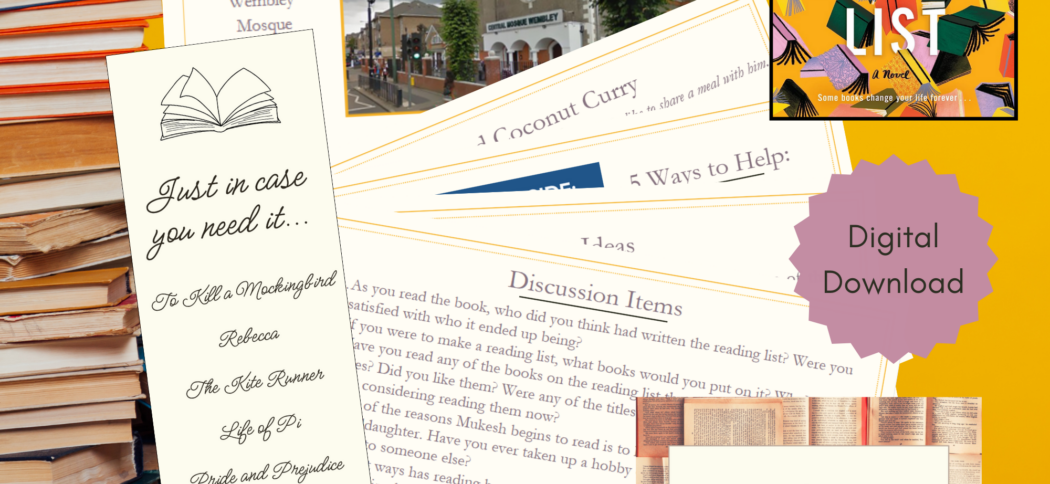 Wembley
Mosque
CENTRAL MOSQUE WEMBLEY
LIST
A Novel
Some books change your life forever...
Coconut Curry
to share a meal with him.
5 Ways to Help:
Ideas
Digital
Download
Just in case
you need it...
To Kill a Mockingbird
Rebecca
The Kite Runner
Life of Pi
Pride and Prejudice
Discussion Items
As you read the book, who did you think had written the reading list? Were you
satisfied with who it ended up being?
f you were to make a reading list, what books would you put on it?
ave you read any of the books on the reading list
es? Did you like them? Were any of the titles
considering reading them now?
of the reasons Mukesh begins to read is to
daughter. Have you ever taken up a hobby
o someone else?
ways has reading